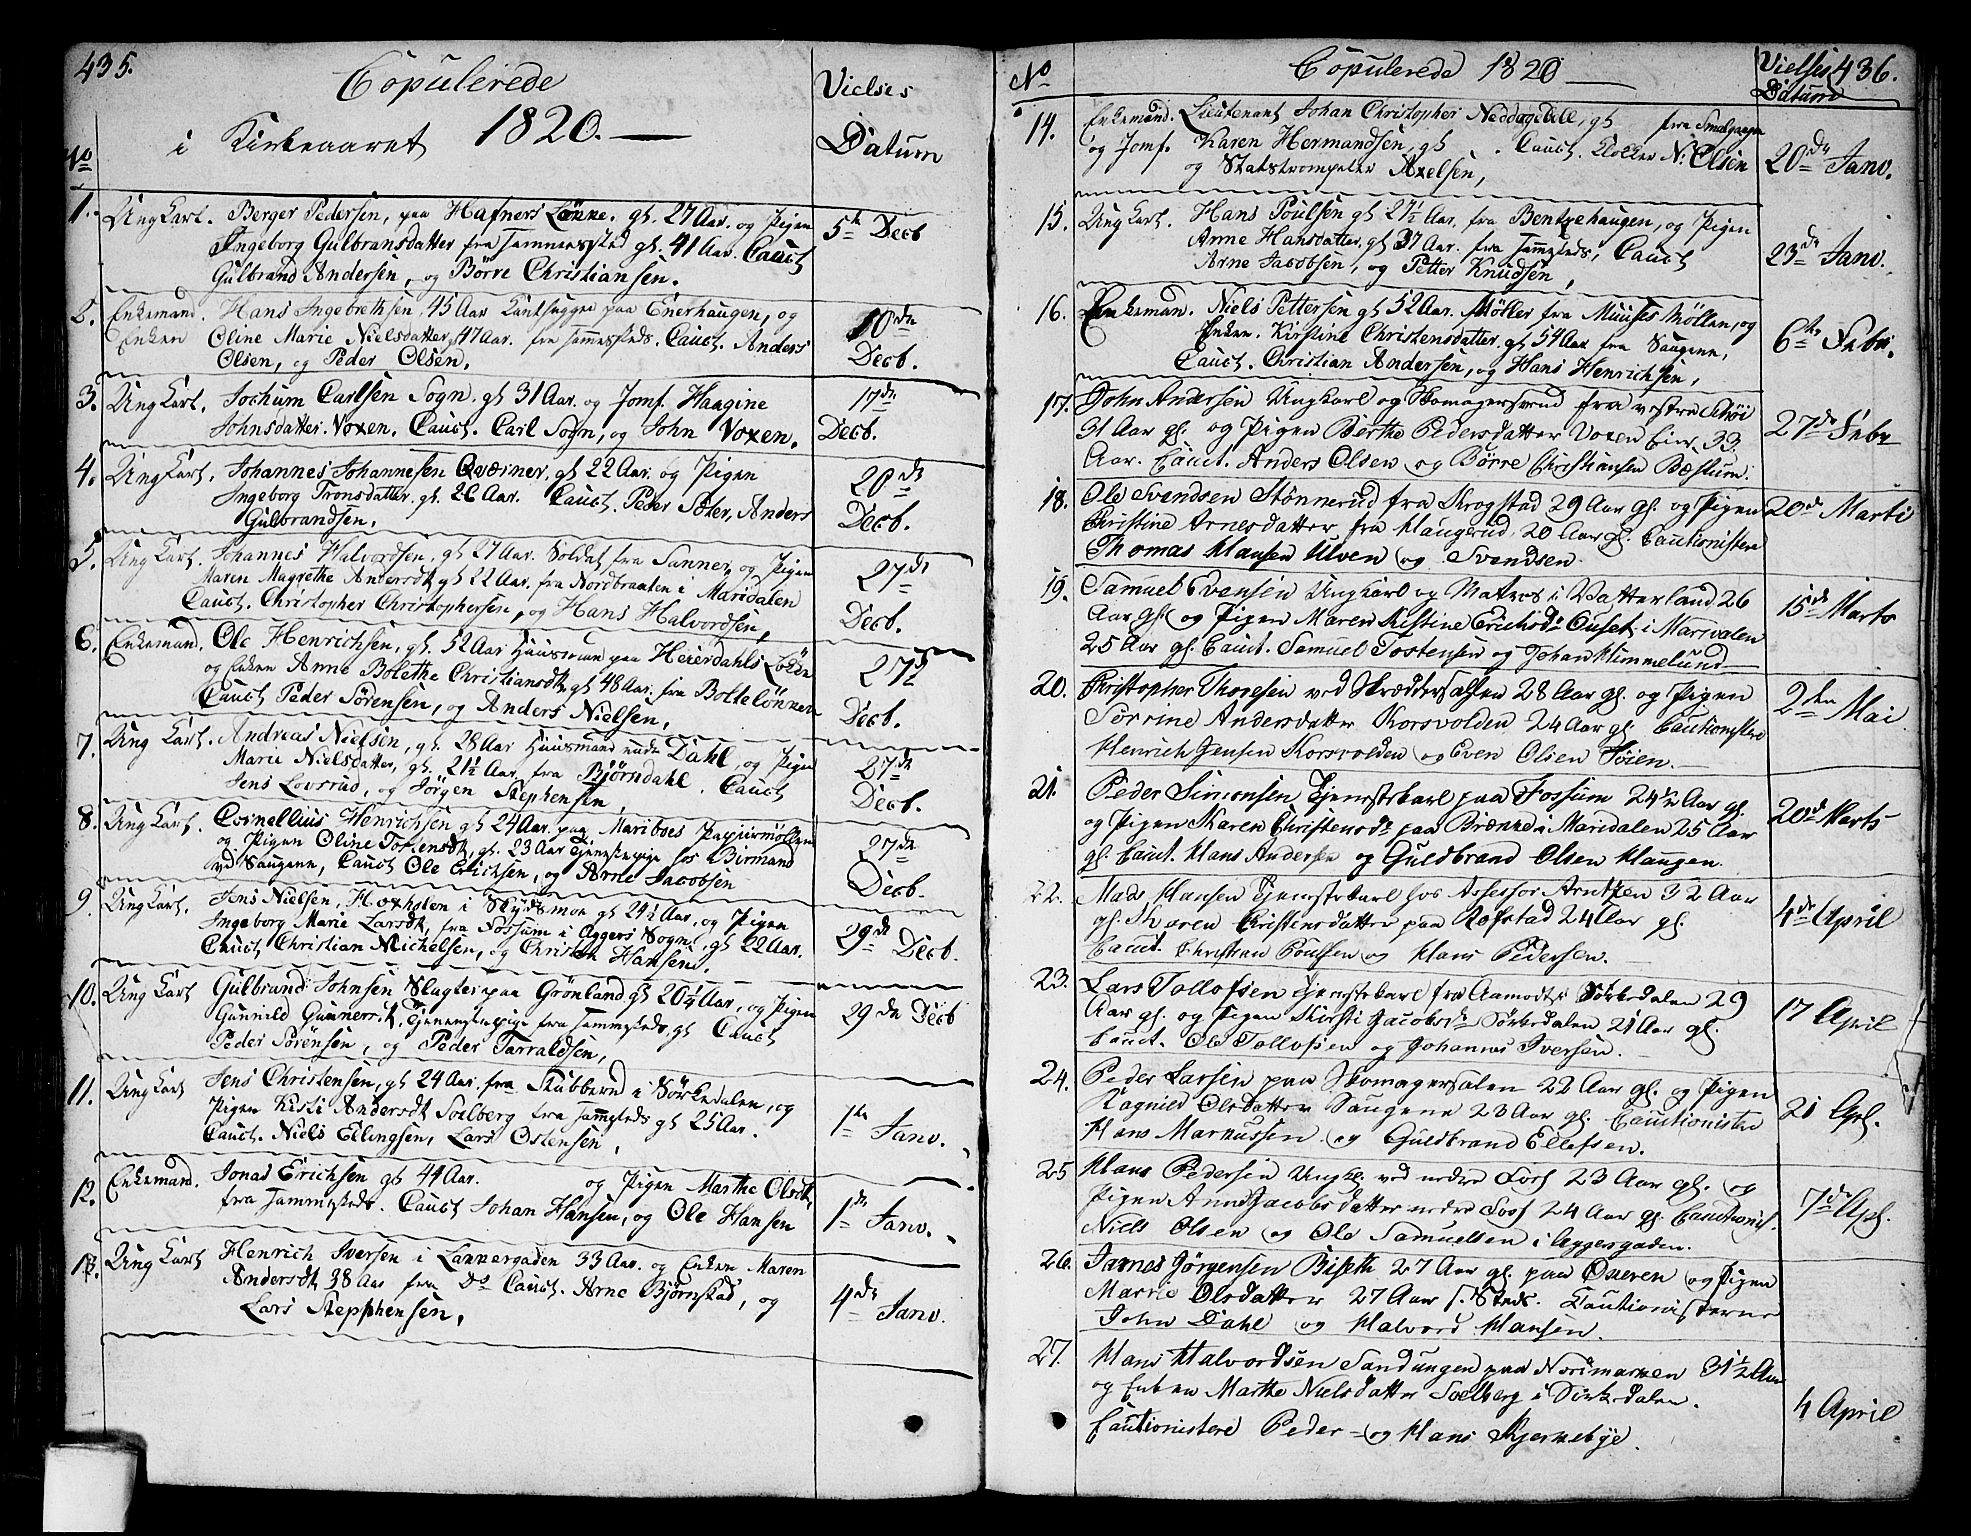 435.
Copulerede
i Kirkeaaret 1820.
No
Vielses
Datum
1. Ung Karl. Berger Pedersen, paa Hafners Lökke. gl. 27 Aar. og Pigen
Ingeborg Gulbransdatter fra Jammersted gl. 41 Aar. Cauct
Gulbrand Andersen, og Börre Christiansen.
5te Decb
2. Enkemand. Hans Ingebrethsen, 45 Aar paa Enerhaugen, og
Enken Oline Marie Nielsdatter, 47 Aar. fra Jammesteds. Cauct. Anders
Olsen, og Peder Olsen.
10de
Decb.
3. Ung Karl. Jochum Carlsen Sogn. gl 31 Aar. og Jomf. Haagine
Johnsdatter. Voxen. Cauct. Carl Sogn, og John Voxen.
17de
Decb.
4. Ung Karl. Johannes Johannesen Qværner, gl 22 Aar. og Pigen
Ingeborg Tronsdatter, gl. 26 Aar. Cauct. Peder Soter, Anders
Gulbrandsen.
20de
Decb.
5. Ung Karl. Johannes Halvordsen, gl 27 Aar. Soldat fra Sanner, og Pigen
Maren Magrethe Andersdt, gl 22 Aar. fra Nordbraaten i Maridalen
Cauct. Christopher Christophersen, og Hans Halvordsen,
27de
Decb.
6. Enkemand. Ole Henrichsen, gl. 52 Aar Huusmand paa Heierdahls Löken
og Enken Anne Bolethe Christiansdt, gl 48 Aar. fra Boltelönnen
Cauct Peder Sörensen, og Anders Nielsen,
27de
Decb.
7. Ung Karl. Andreas Nielsen, gl. 28 Aar Huusmand Dahl, og Pigen
Marie Nielsdatter, gl. 21½ Aar. fra Björndahl. Cauct
Jens Lovsrud, og Jörgen Stephensen,
27de
Decb.
8. Ung Karl. Cornellius Henrichsen gl 24 Aar. paa Mariboes Papiirmöllen
og Pigen Oline Toftensdt, gl. 23 Aar Tjenestepige hos Birmand
ved Saugene, Cauct Ole Erichsen, og Arne Jacobsen
27de
Decb.
9. Ung Karl. Jens Nielsen, i Skydsmoe gl 24½ Aar, og Pigen
Ingeborg Marie Larsdt, fra Fossum i Aggers Sogn, gl 22 Aar.
Cauct, Christian Michelsen, og Hansen.
29de Decb.
10. Ung Karl Gulbrand Johnsen Slagter paa Grönland gl 20½ Aar, og Pigen
Gunnild Gunnersdt, Tjenestepige fra Jammesteds, gl Cauct
Peder Sörensen, og Peder Tarraldsen,
29de Decb
11. Ung Karl Jens Christensen, gl 24 Aar. fra Stubberud i Sörkedalen, og
Pigen Kisti Andersdt Soelberg fra Jammesteds gl 25 Aar.
Cauct. Niels Ellingsen, Lars Ostensen,
1te Janv.
12. Enkemand. Jonas Erichsen gl 44 Aar. og Pigen Marthe Olsdt,
fra Jammesteds. Cauct Johan Hansen, og Ole Hansen
1de Janv.
13. Ung Karl Henrich Iversen i Lakkergaden 33 Aar. og Enken Maren
Andersdt 38 Aar fra Do Cauct. Arne Björnstad, og
Lars Stepphensen,
4de Janv.
No
Copulerede 1820
Vielses 436.
Datum
14. Enkemand. Lieutenant Johan Christopher gl fra Smalgangen
og Jomf. Karen Hermandsen, gl . Cauct. Klokker N: Olsen
og Stabstrompeter Axelsen,
20de Janv.
15. Ung Karl. Hans Poulsen gl 27½ Aar. fra Bentzehaugen, og Pigen
Anne Hansdatter, gl 37 Aar. fra Jammesteds, Cauct
Arne Jacobsen, og Petter Knudsen,
23de Janv.
16. Enkeman. Niels Pettersen gl 52 Aar. Möller fra Muuses Möllen, og
Enken. Kirstine Christensdatter, gl 54 Aar fra Saugene,
Cauct. Christian Andersen, og Hans Henrichsen,
6te Febr.
17. John Andersen Ungkarl og Skomagersvend fra vestre
31 Aar gl. og Pigen Berthe Pedersdatter Voxen Eier 33
Aar. Cauct. Anders Olsen og Börre Christiansen Bæstum.
27de Febr
18. Ole Svendsen Stönnerud fra Skrogstad 29 Aar gl. og Pigen
Christine Arnesdatter fra Haugerud, 20 Aar gl. Cautionistere
Thomas Hansen Ulven og Svendsen.
20de Marti
19. Samuel Evensen Ungkarl og Matros i Vatterland 26
Aar gl. og Pigen Maren Kistine Erichsdr Ouset i Marivalen
25 Aar gl. Cauct. Samuel Tostensen og Johan Himmelund
15de Marts
20. Christopher Thoresen ved Skræddersalen 28 Aar gl. og Pigen
Sörrine Andersdatter Korsvolden 24 Aar gl. Cautionistere
Henrich Jensen Korsvolden og Even Olsen Höien.
2den Mai
21. Peder Simonsen Tjenestekarl paa Fossum 24½ Aar gl.
og Pigen Karen Christensdr paa Brække i Maridalen 25 Aar
gl. Cauct. Hans Andersen og Guldbrand Olsen Haugen.
20de Marts
22. Mads Hansen Tjenestekarl hos Assessor Arntzen 32 Aar
gl. Karen Christensdatter paa Refstad 24 Aar gl.
Cauct. Christian Poulsen og Hans Pedersen.
4de April
23. Lars Tollofsen Tjenestekarl fra Aamodt i Sörkedalen 29
Aar gl. og Pigen Kirsti Jacobsdr Sörkedalen 21 Aar gl.
Cauct. Ole Tollofsen og Johannes Iversen.
17 April
24. Peder Larsen paa Skomagersalen 22 Aar gl. og Pigen
Ragnild Olsdatter Saugene 23 Aar gl. Cautionistere
Hans Markussen og Guldbrand Ellefsen.
21 Apl.
25 Hans Pedersen Ungkl. ved nedre Fors 23 Aar gl. og
Pigen Anne Jacobsdatter nedre Fors 24 Aar gl. Cautionist.
Niels Olsen og Ole Samuelsen i Aggersgaden.
7de Apl.
26. James Jörgensen 27 Aar gl. paa Qværen og Pigen
Marrie Olsdatter 27 Aar s. Steds. Cautionisterne
John Dahl og Halvord Hansen.
27. Hans Halvordsen Sandungen paa Nordmarken 31½ Aar
og Enken Marthe Nielsdatter Soelberg i Sörkedalen.
Cautionistere Peder og Hans Bjerkebÿe.
4 April